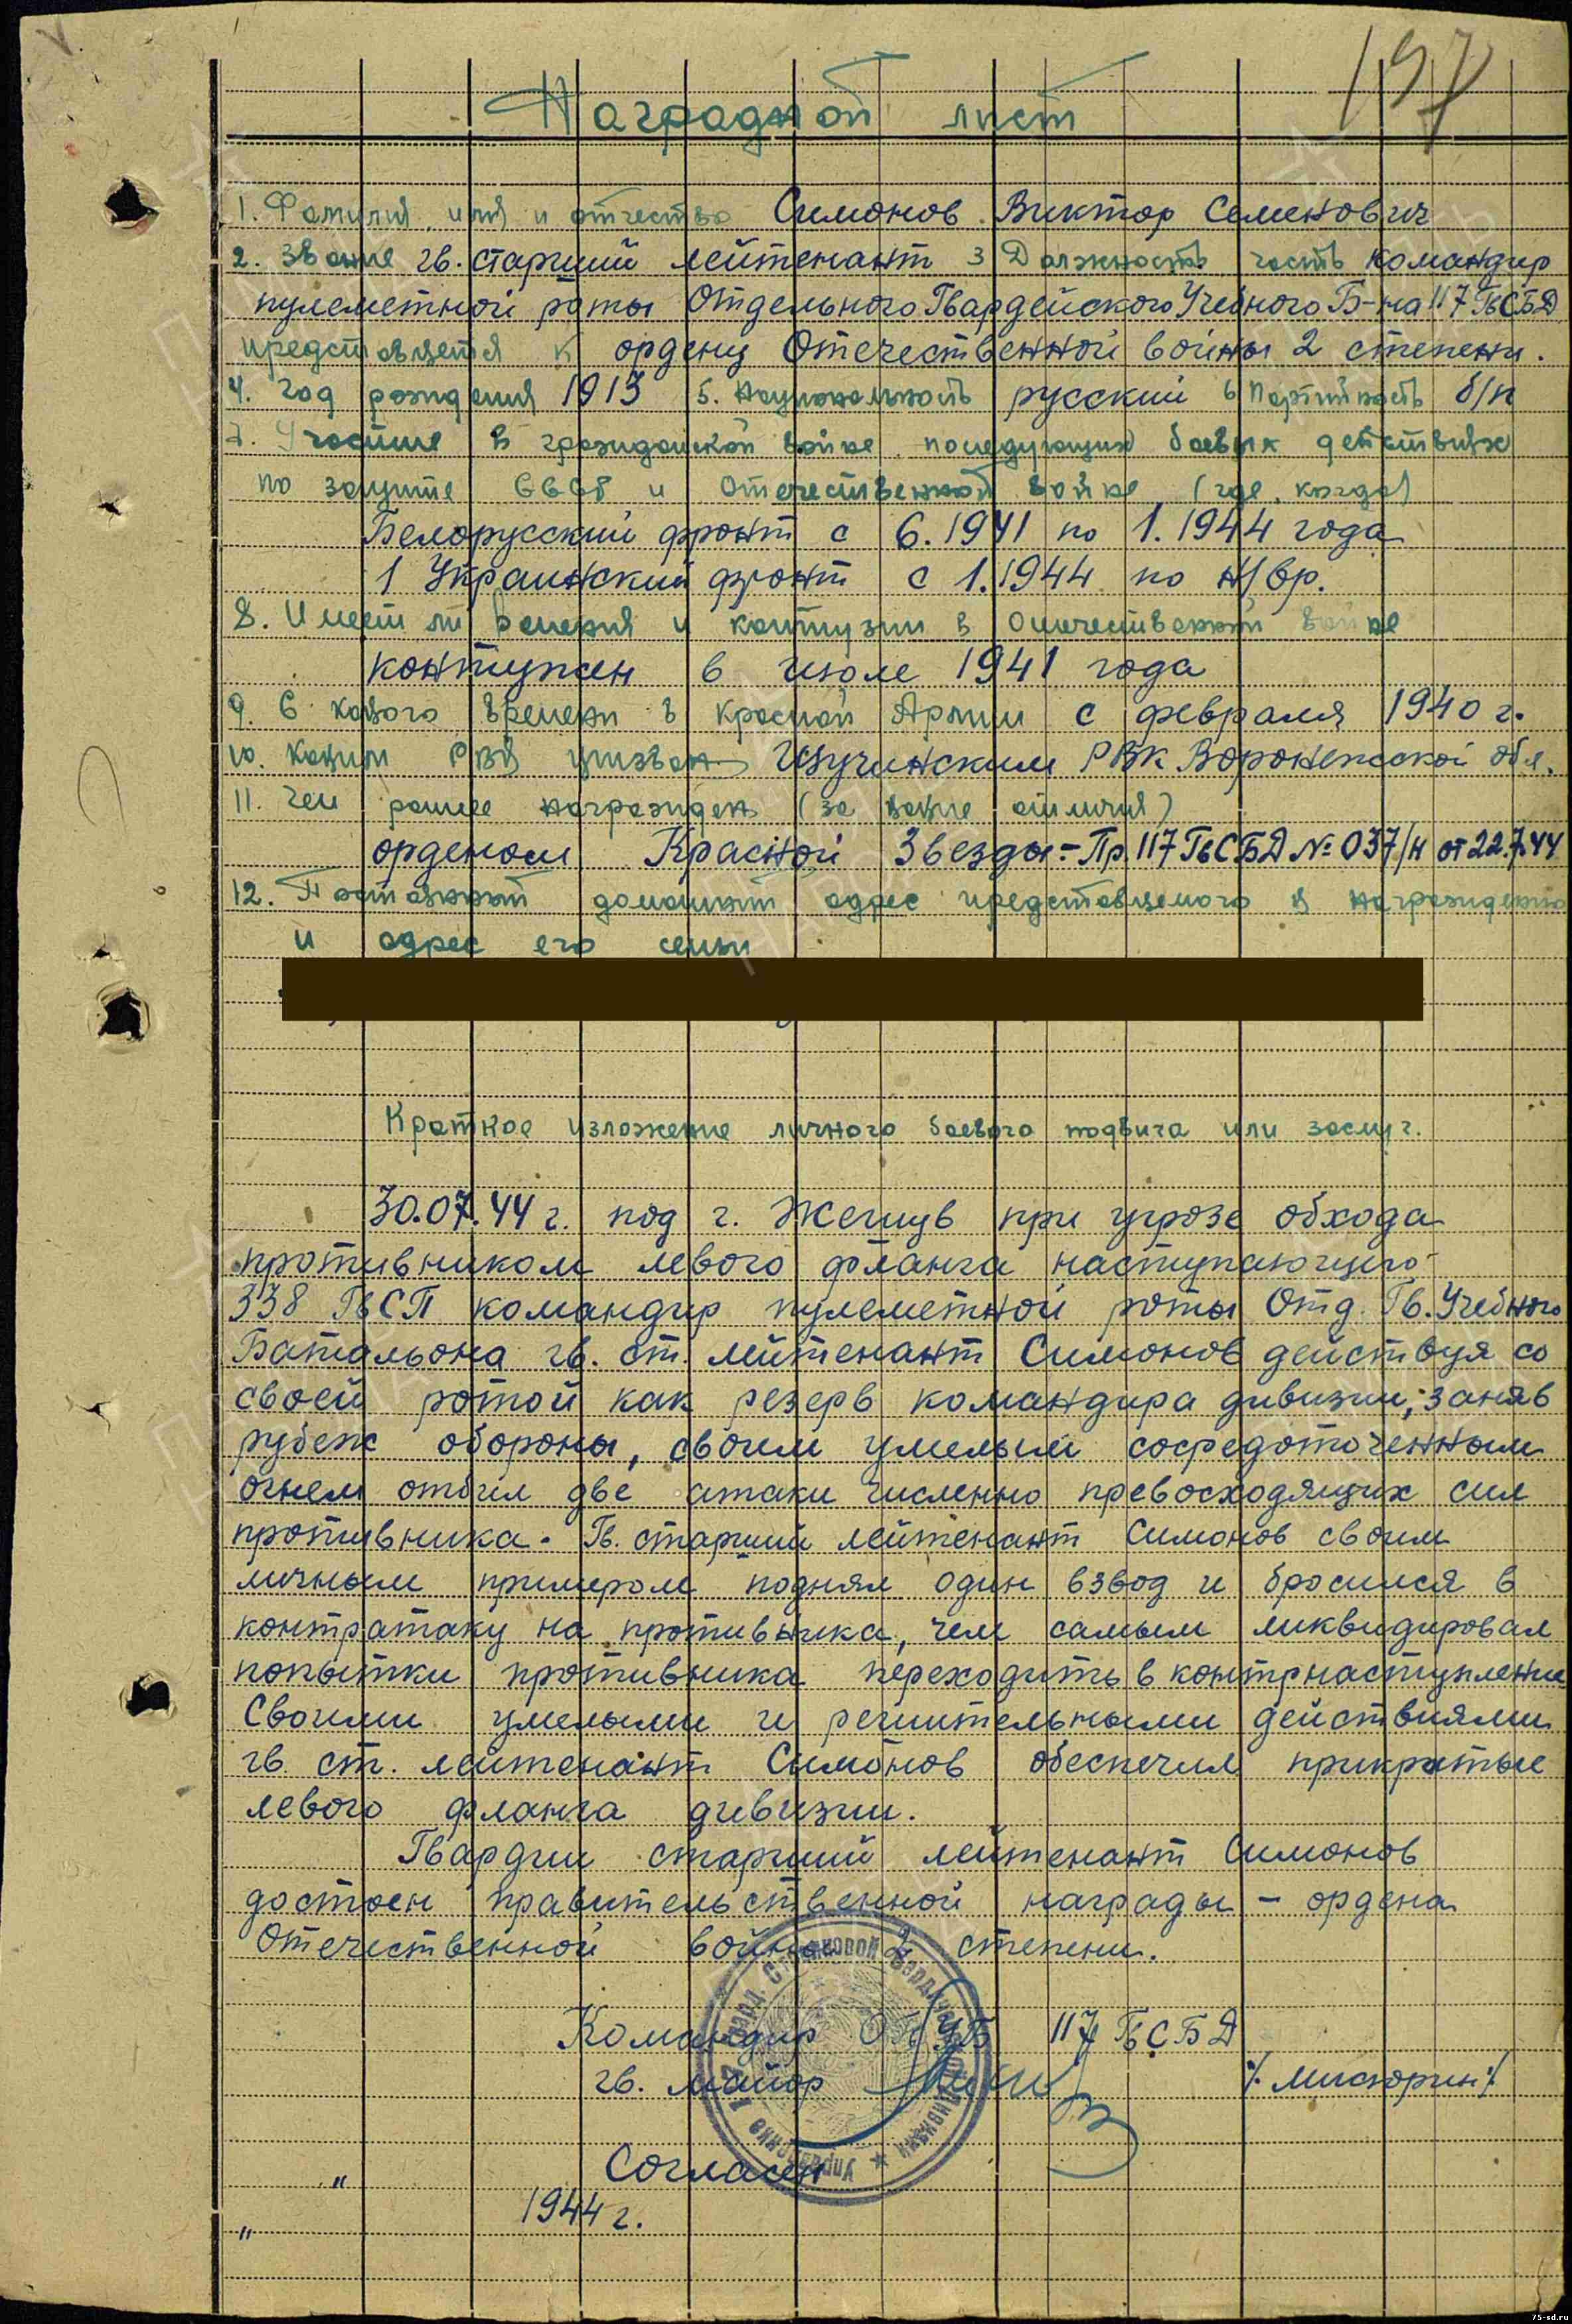 197
Наградной лист
1. Фамилия, имя и отчество Симонов Виктор Семенович
2. Звание гв. старший лейтенант 3 Должность часть командир
пулеметной роты Отдельного Гвардейского Учебного Б-на 117 ГвСБД
представляется к ордену Отечественной войны 2 степени.
4. Год рождения 1913 5. Национальность русский 6 Партийность б/п
7. Участие в гражданской войне последующих боевых действиях
по защите СССР и Отечественной войне (где, когда)
Белорусский фронт с 6.1941 по 1.1944 года
1 Украинский фронт с 1.1944 по н/вр.
8. Имеет ли ранения и контузии в Отечественной войне
контужен в июле 1941 года
9. С какого времени в Красной Армии с февраля 1940 г.
10. Каким РВК призван Щучинским РВК Воронежской обл.
11. Чем ранее награжден (за какие отличия)
орденом Красной Звезды - Пр. 117 ГвСБД № 037/н от 22.7.44
12. Постоянный домашний адрес представляемого к награждению
и адрес его семьи
Краткое изложение личного боевого подвига или заслуг.
30.07.44 г. под г. Жешув при угрозе обхода
противником левого фланга наступающего
338 ГвСП командир пулеметной роты Отд. Гв. Учебного
Батальона гв. ст. лейтенант Симонов действуя со
своей ротой как резерв командира дивизии, заняв
рубеж обороны, своим умелым сосредоточенным
огнем отбил две атаки численно превосходящих сил
противника. Гв. старший лейтенант Симонов своим
личным примером поднял один взвод и бросился в
контратаку на противника, чем самым ликвидировал
попытки противника переходить в контрнаступление
Своими умелыми и решительными действиями
гв. ст. лейтенант Симонов обеспечил прикрытие
левого фланга дивизии.
Гвардии старший лейтенант Симонов
достоен правительственной награды - ордена
Отечественной войны 2 степени.
Командир ОГУБ 117 ГвСБД
гв. майор /Мисюрин/
Согласен
" 1944 г.
"
75-sd.ru